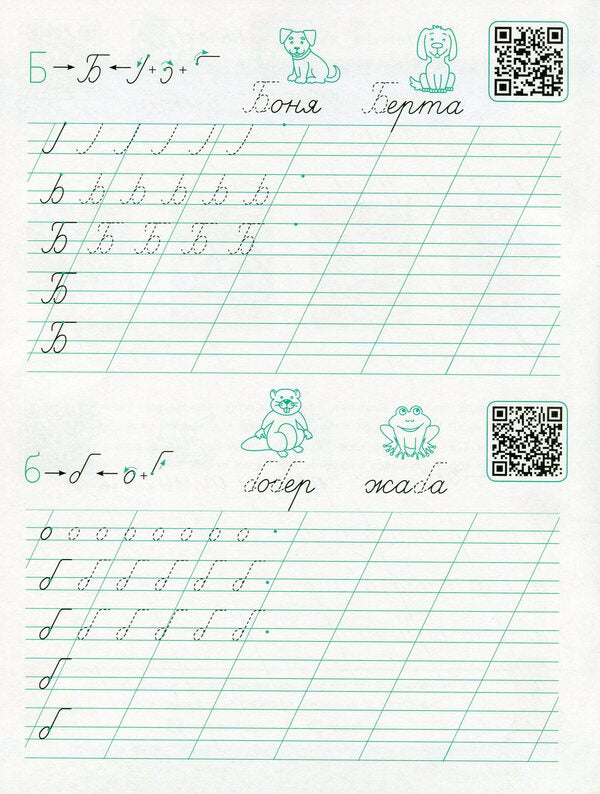 Б → Б ←
Боня Берта
ь ь ь ь ь ь
Б Б Б Б Б
Б
Б
б → б ← о +
бобер жаба
о о о о о о о о
б б б б б б
б б б б б б
б
б